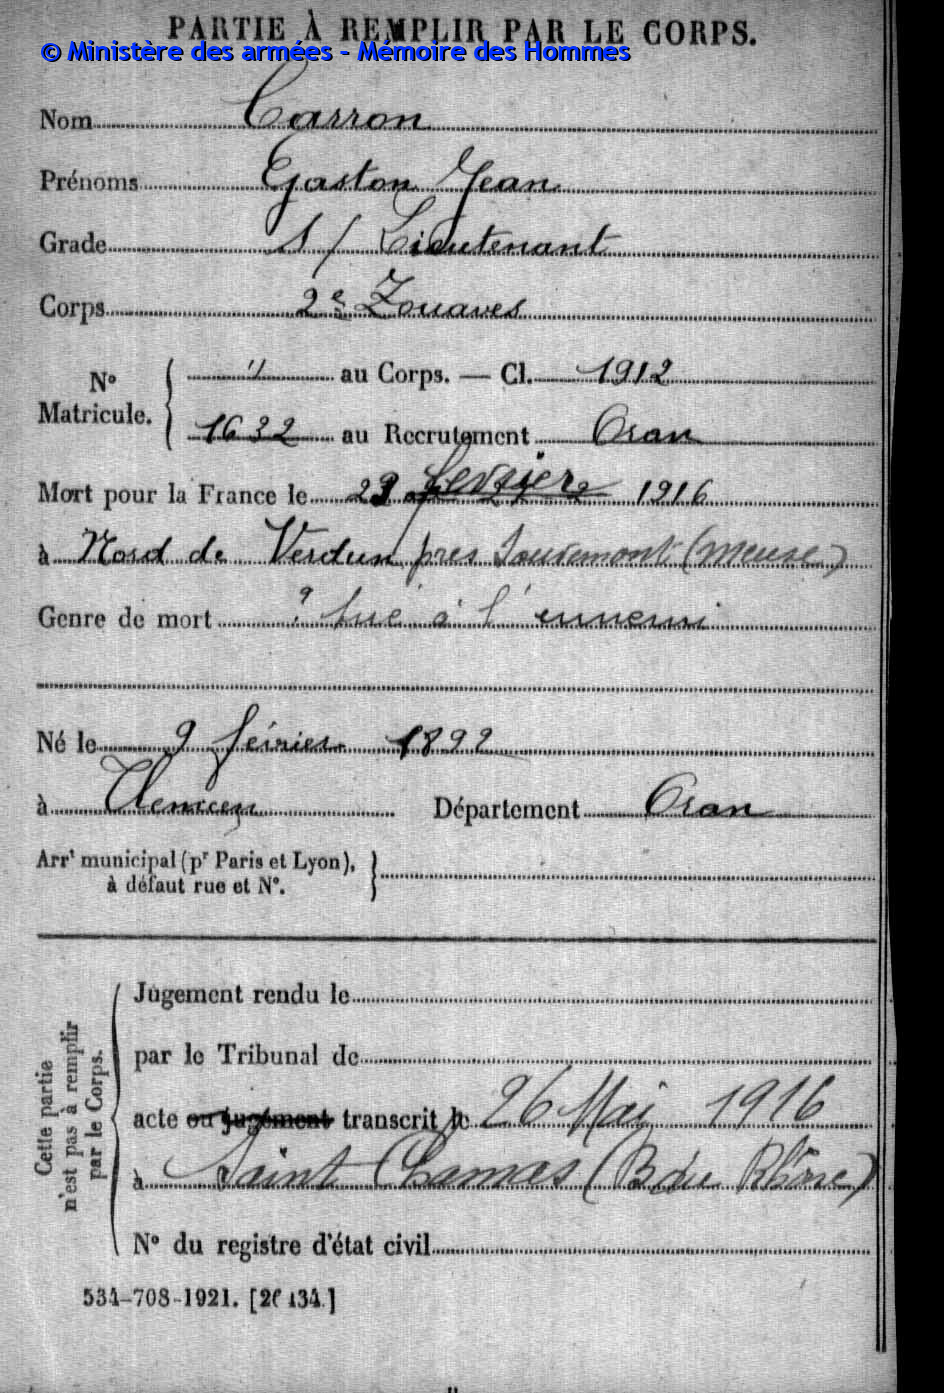 PARTIE À REMPLIR PAR LE CORPS.
© Ministère des armées - Mémoire des Hommes
Nom Carron
Prénoms Gaston Jean
Grade S/Lieutenant
Corps 2e Zouaves
No Matricule. " au Corps. — Cl. 1912
1632 au Recrutement Oran
Mort pour la France le 23 février 1916
à Nord de Verdun près Louvemont (Meuse)
Genre de mort ? tué à l'ennemi
Né le 9 février 1892
à Tlemcen Département Oran
Arrt municipal (pr Paris et Lyon),
à défaut rue et No.
Cette partie
n'est pas à remplir
par le Corps.
Jugement rendu le
par le Tribunal de
acte ou jugement transcrit le 26 Mai 1916
à Saint Chamas (B du Rhône)
No du registre d'état civil
534-708-1921. [26434.]